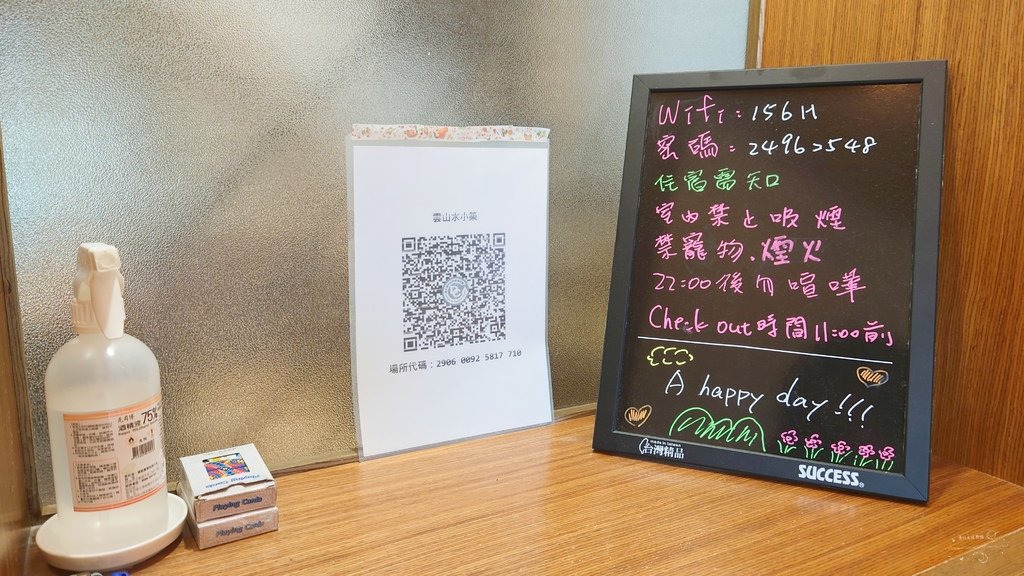 75%
酒精液
Playing Cards
Playing Cards
雲山水小築
場所代碼：2906 0092 5817 710
Wifi：156H
密碼：24962548
住宿需知
室內禁止吸煙
禁寵物、煙火
22:00後勿喧嘩
Check out時間11:00前
A happy day!!!
made in taiwan
台灣精品
SUCCESS